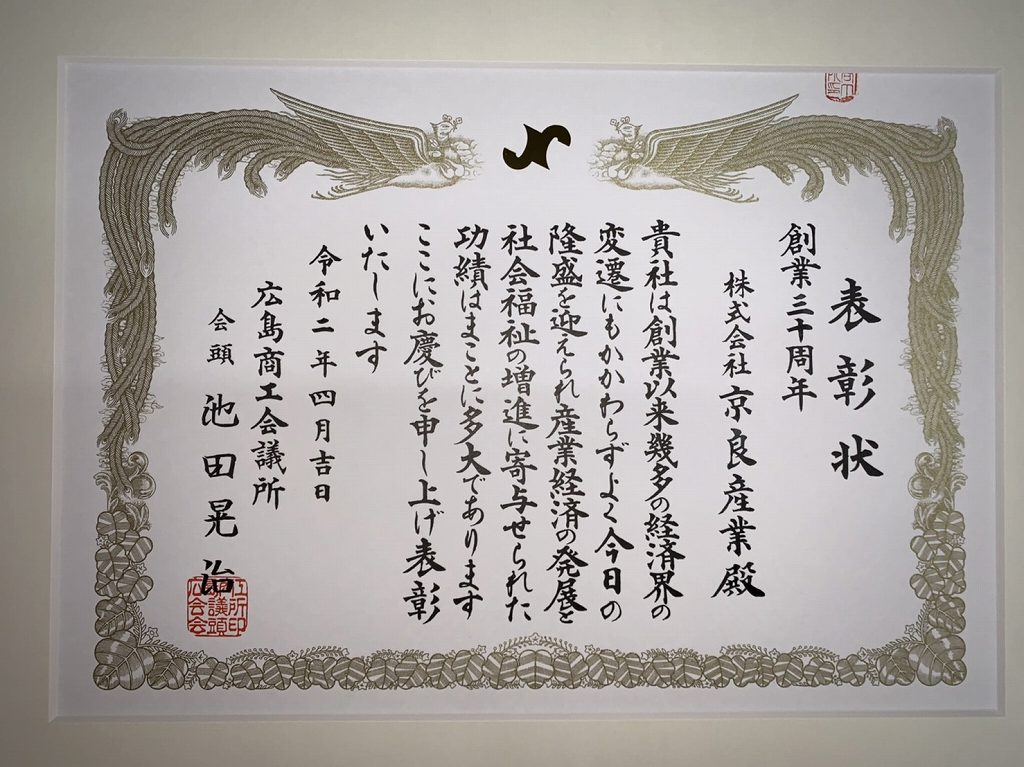 表彰状
創業三十周年
株式会社 京良産業殿
貴社は創業以来幾多の経済界の
変遷にもかかわらずよく今日の
隆盛を迎えられ産業経済の発展と
社会福祉の増進に寄与せられた
功績はまことに多大であります
ここにお慶びを申し上げ表彰
いたします
令和二年四月吉日
広島商工会議所
会頭 池田晃治